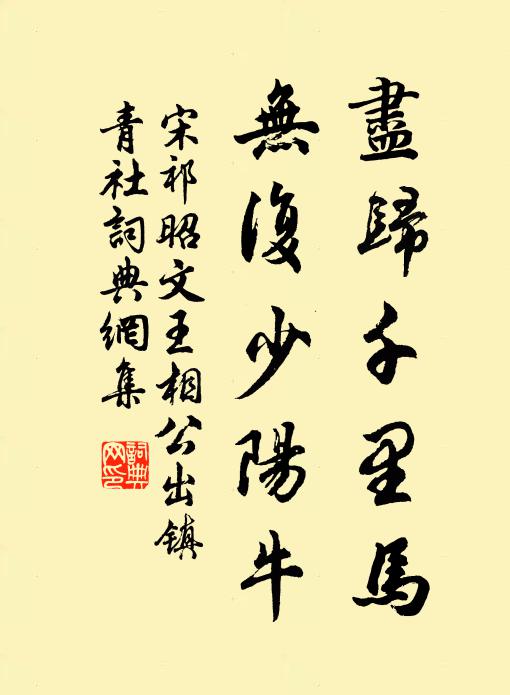 盡歸千里馬
無復少陽牛
宋祁昭文王相公出鎮
青社詞典網集
詞典網印